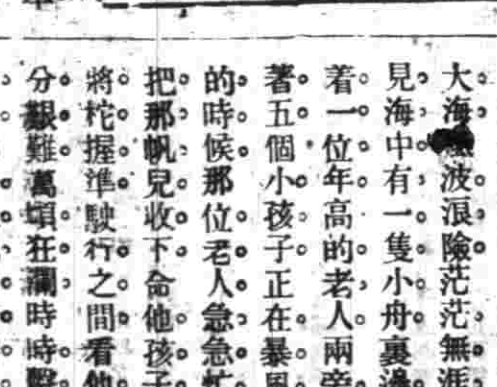 大海波浪險茫茫無涯
見海中有一隻小舟裏邊
着一位年高的老人兩旁
著五個小孩子正在暴風
的時候那位老人急急忙
把那帆兒收下命他孩子
將柁握準駛行之間看他
分艱難萬頃狂瀾時時擊